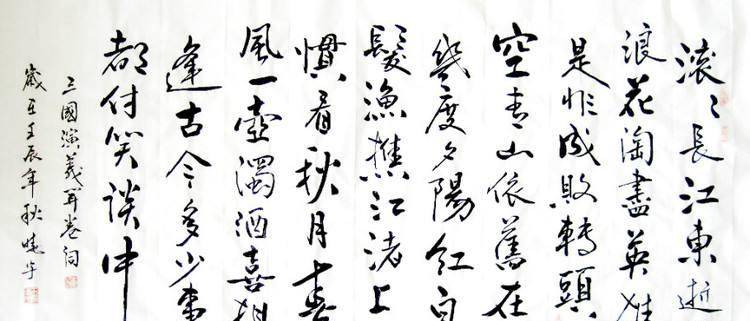 滚〻長江東逝
浪花淘盡英雄
是非成敗轉頭
空青山依舊在
幾度夕陽紅白
髮漁樵江渚上
慣看秋月春
風一壺濁酒喜相
逢古今多少事
都付笑談中
三國演義開卷詞
歲壬辰年秋曉